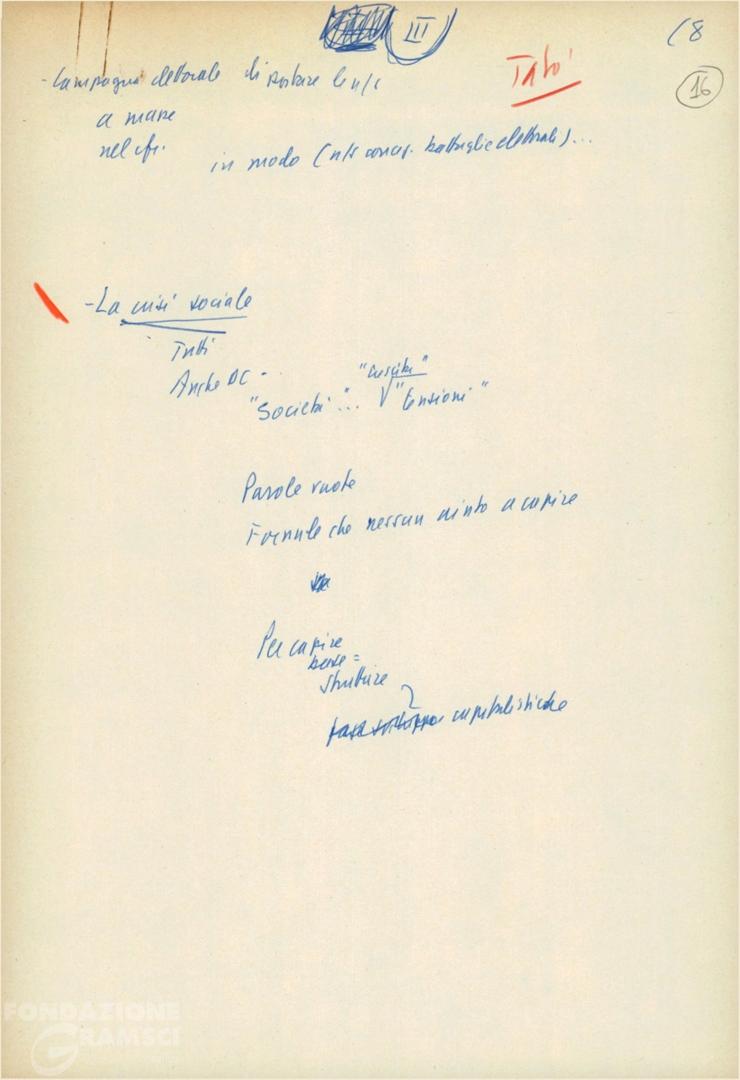 III
(8
16
Tatò
- Campagna elettorale di portare le n/s
a mare
nel
in modo (n/s concez. battaglie elettorali)...
- La crisi sociale
Tutti
Anche DC -
"crescita"
"Società"... "tensioni"
Parole vuote
Formule che nessun aiuto a capire
Per capire
base =
strutture
capitalistiche
FONDAZIONE
GRAMSCI